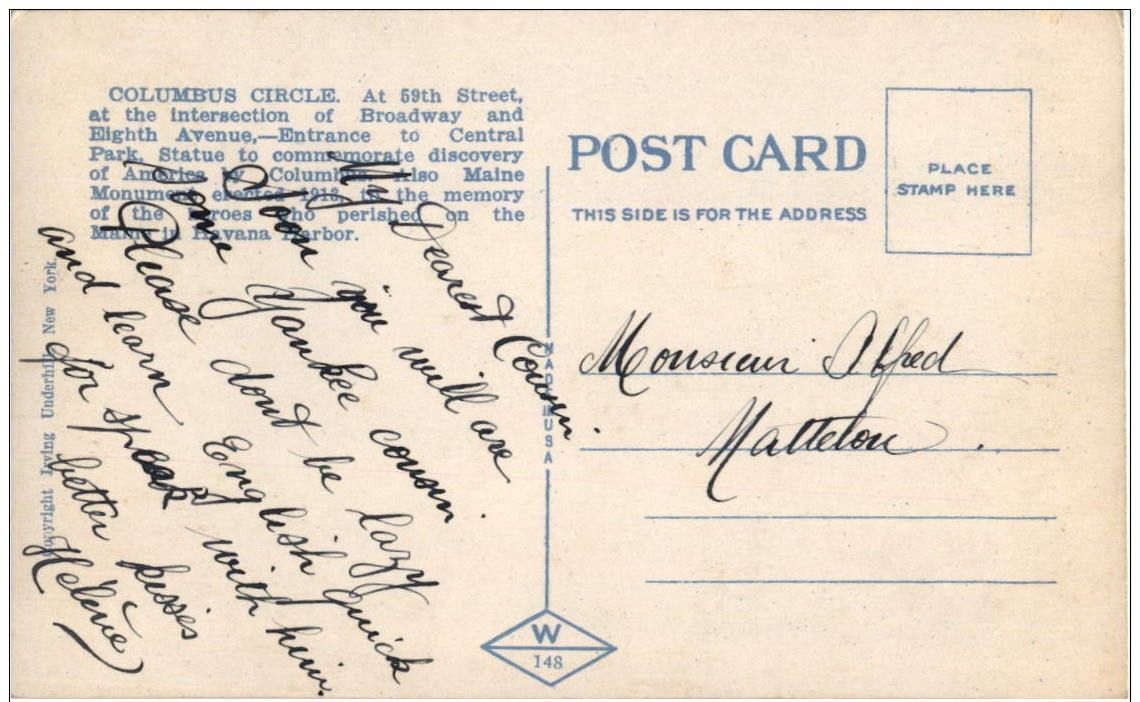 COLUMBUS CIRCLE. At 59th Street,
at the intersection of Broadway and
Eighth Avenue,—Entrance to Central
Park. Statue to commemorate discovery
of America by Columbus. Also Maine
Monument erected 1913, to the memory
of the heroes who perished on the
Maine in Havana Harbor.
Copyright Irving Underhill New York.
My Dearest Cousin.
Soon you will are
some Yankee cousin.
Please dont be lazy
and learn English quick
for speak with him.
better kisses
Helène
MADE IN USA
W
148
POST CARD
THIS SIDE IS FOR THE ADDRESS
PLACE
STAMP HERE
Monsieur Alfred
Matteton.